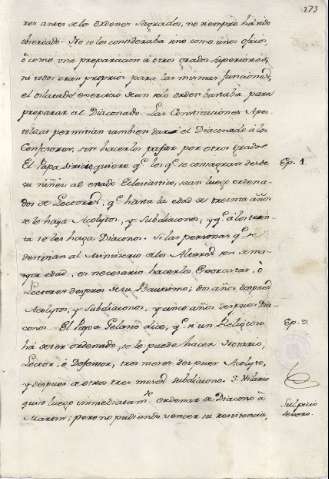 173
res antes de los ordenes sagrados, no siempre ha sido
observado. No se los consideraba sino como unos oficios,
ò como una preparacion à otros grados superiores, si
ni todos eran proprios para las mismas funciones,
el dilatado exercicio de un solo orden bastaba para
preparar al Diaconado. Las Constituciones Apos-
tolicas permitian tambien dar el Diaconado à los
Confesores, sin hacerlos pasar por otros grados.
El Papa Siricio quiere qe los qe se consagran desde
su niñez al estado Eclesiastico, sean luego ordena-
dos de Lectores, qe hasta la edad de treinta años
se les haga Acolytos, y Subdiaconos, y qe à los trein-
ta se les haga Diaconos. Si las personas qe se
destinan al Ministerio de los Altares son de ma-
yor edad, es necesario hacerlos Exorcistas, ò
Lectores despues de su Bautismo; dos años despues
Acolytos, y Subdiaconos, y cinco años despues Dia-
conos. El Papa Gelasio dice, qe si un Religioso
ha de ser ordenado, se le puede hacer Notario,
Lector, ò Defensor, tres meses despues Acolyto,
y despues de otros tres meses Subdiacono. S. Hilario
quiso luego inmediatamte ordenar de Diacono à
Martin; pero no pudiendo vencer su resistencia,
Ep. 1.
Ep. 9.
Sulpicio
Severo.